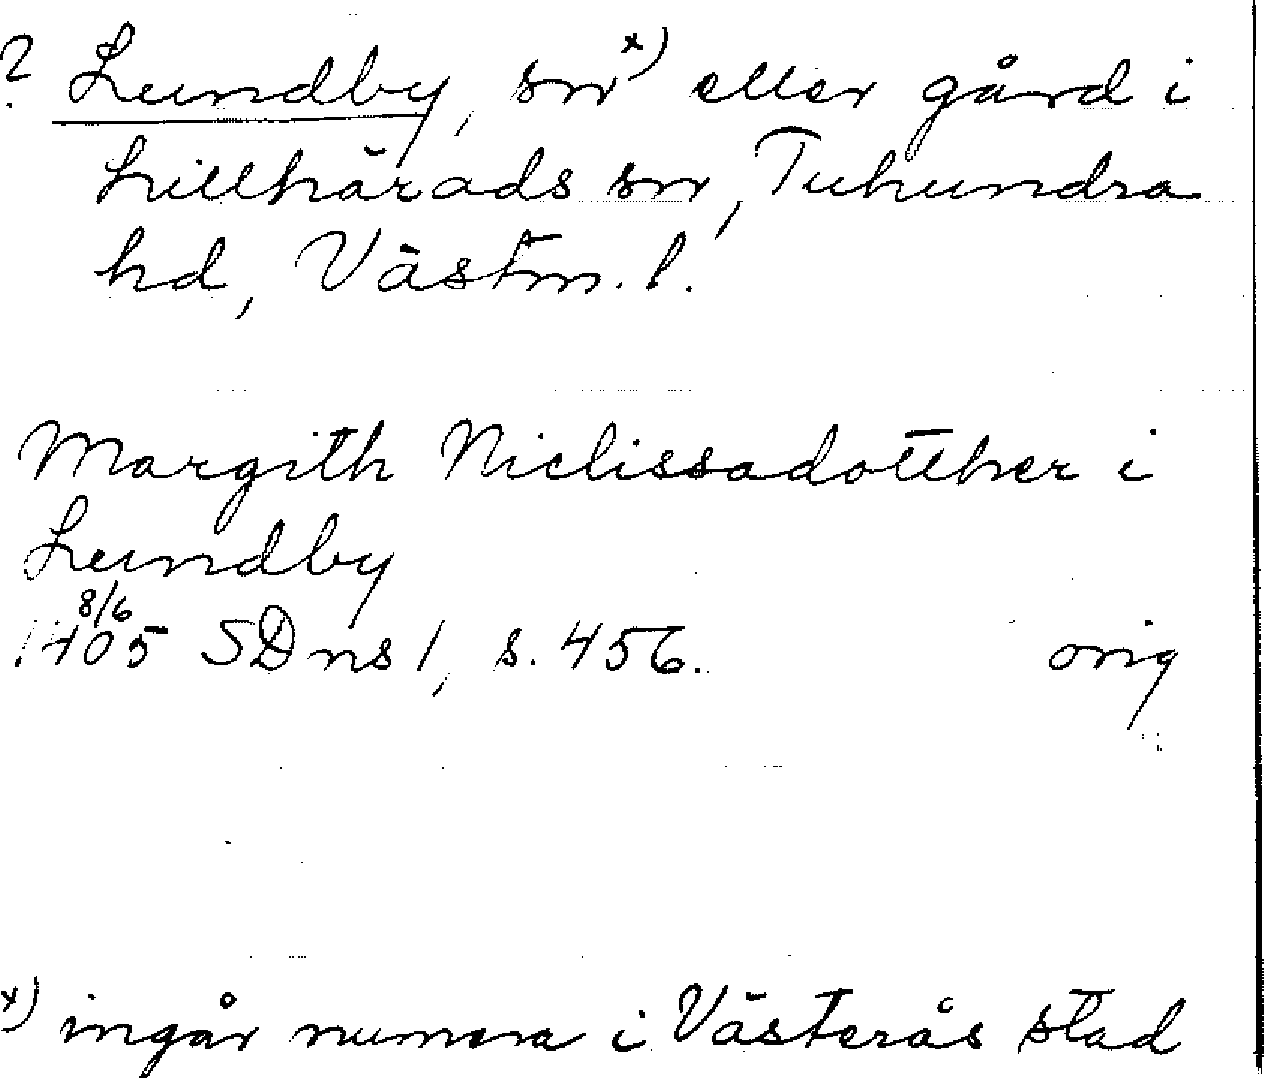 ? Lundby, sn x) eller gård i
Lillhärads sn, Tuhundra
hd, Västm. l.
Margith Niclissadotther i
Lundby
8/6
1405 SDns 1, s. 456. orig
x) ingår numera i Västerås stad